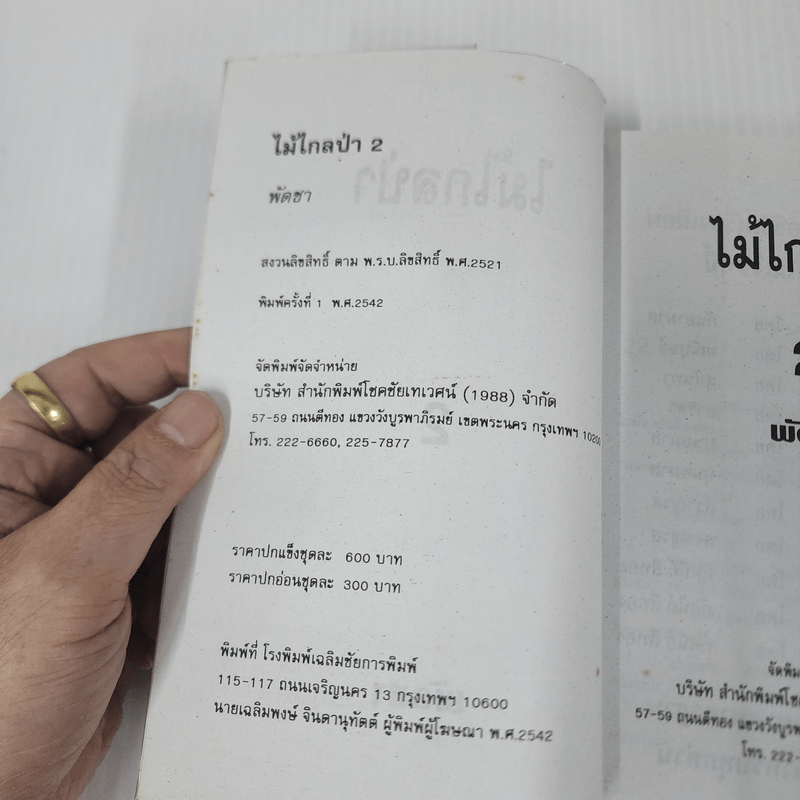 ไม้ไกลป่า 2
พัดชา
สงวนลิขสิทธิ์ ตาม พ.ร.บ.ลิขสิทธิ์ พ.ศ.2521
พิมพ์ครั้งที่ 1 พ.ศ.2542
จัดพิมพ์จัดจำหน่าย
บริษัท สำนักพิมพ์โชคชัยเทเวศน์ (1988) จำกัด
57-59 ถนนตีทอง แขวงวังบูรพาภิรมย์ เขตพระนคร กรุงเทพฯ 10200
โทร. 222-6660, 225-7877
ราคาปกแข็งชุดละ 600 บาท
ราคาปกอ่อนชุดละ 300 บาท
พิมพ์ที่ โรงพิมพ์เฉลิมชัยการพิมพ์
115-117 ถนนเจริญนคร 13 กรุงเทพฯ 10600
นายเฉลิมพงษ์ จินดานุทัตต์ ผู้พิมพ์ผู้โฆษณา พ.ศ.2542
ไม้ไก
จัดพิม
บริษัท สำนักพิมพ์โช
57-59 ถนนตีทอง แขวงวังบูรพา
โทร. 222-